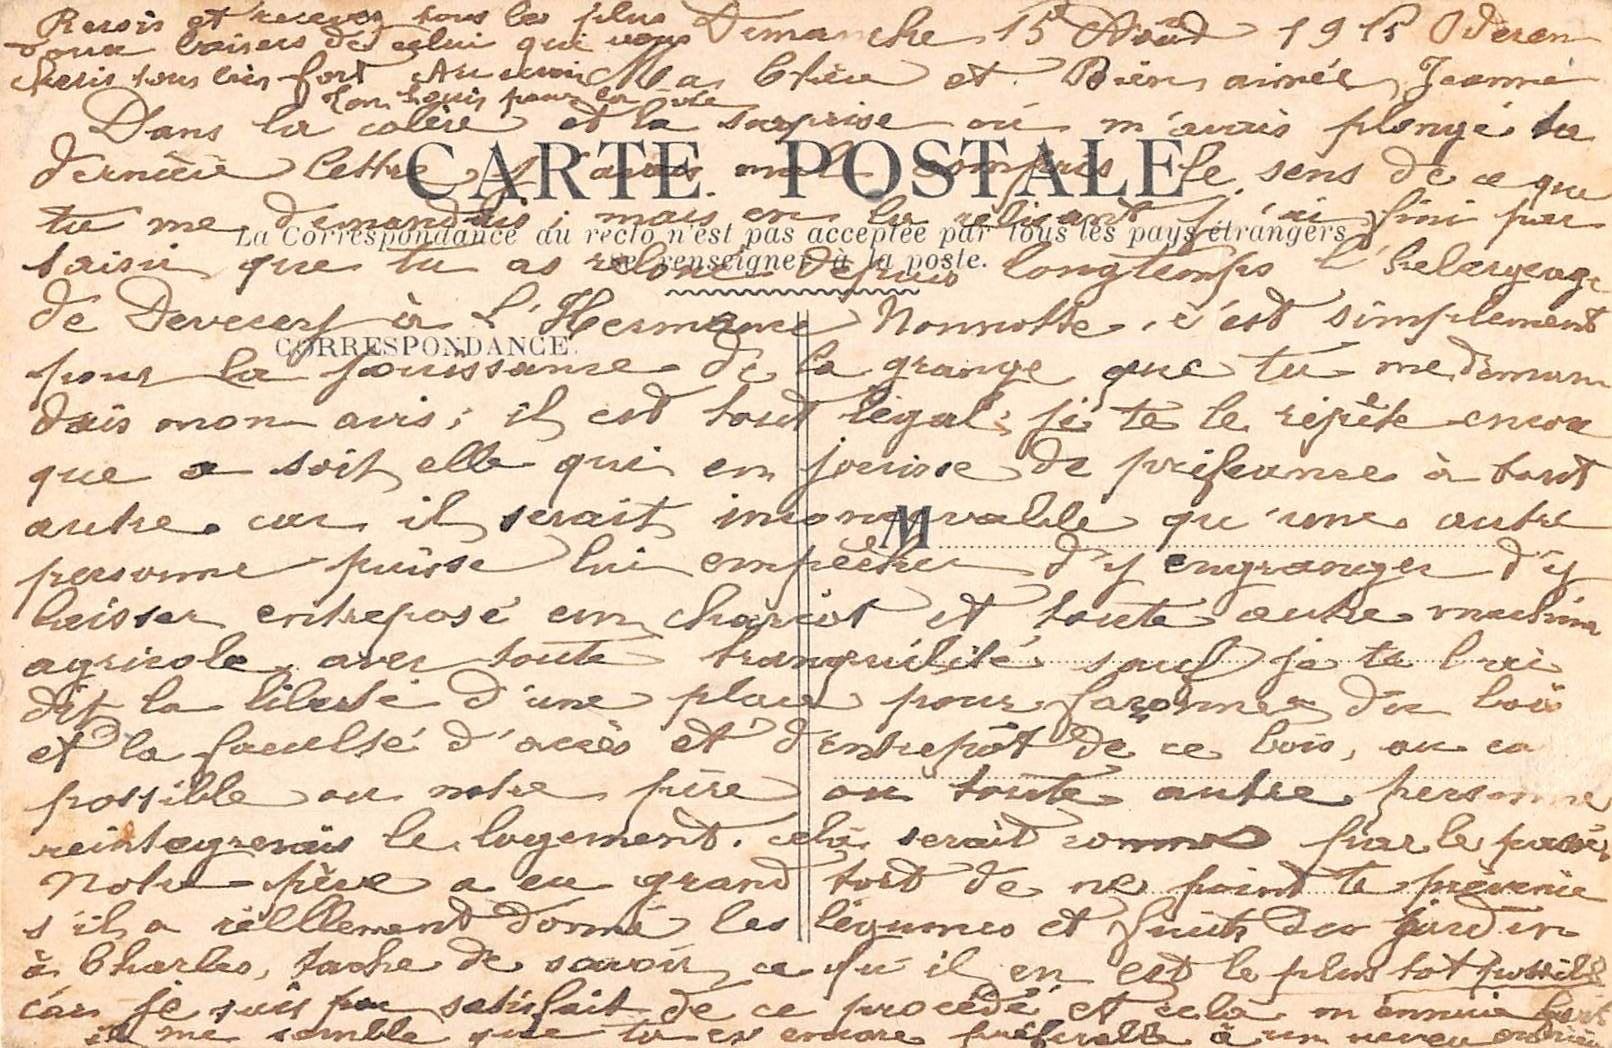 Dimanche 15 Août 1915 Oderen
Ma Chère et Bien aimée Jeanne
Dans la colère et la surprise où m'avais plongé ta
dernière lettre j'avais mal compris le sens de ce que
tu me demandais ; mais en la relisant j'ai fini par
saisir que tu as depuis longtemps l'hebergeage
de à l'Hermance Nonnotte. c'est simplement
pour la jouissance de la grange que tu me deman
dais mon avis ; il est tout légal ; je te le répète encore
que ce soit elle qui en jouisse de préférence à tout
autre. car il serait inconcevable qu'une autre
personne puisse lui empêcher d'y engranger d'y
laisser entreposé un chariot et toute autre machine
agricole avec toute tranquilité sauf je te l'ai
dit la liberté d'une place pour façonner du bois
et la faculté d'accès et d'entrepôt de ce bois, au cas
possible ou notre père ou toute autre personne
reintegrerais le logement. celà serait comme par le passé
Notre père a eu grand tort de ne point te prévenir
s'il a réllement donné les légumes et fruits du jardin
à Charles, tache de savoir ce qu'il en est le plus tot possible
car je suis peu satisfait de ce procédé et cela m'ennuie fort
il me semble que tu es encore préferable à un neveu
Recois et recevez tous les plus
doux baisers de celui qui vous
cheris tous bien fort Au revoir
Ton Louis pour la vie
CARTE POSTALE
La Correspondance au recto n'est pas acceptée par tous les pays étrangers
se renseigner à la poste.
CORRESPONDANCE
M